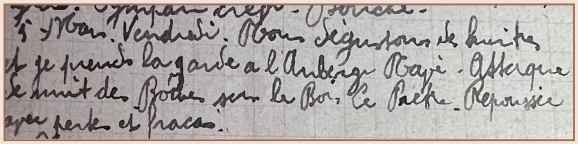 5 Mars. Vendredi. Nous dégustons des huitres
et je prends la garde a l'Auberge Attaque
de nuit des Boches sur le Bois le Prêtre. Repoussée
avec pertes et fracas.